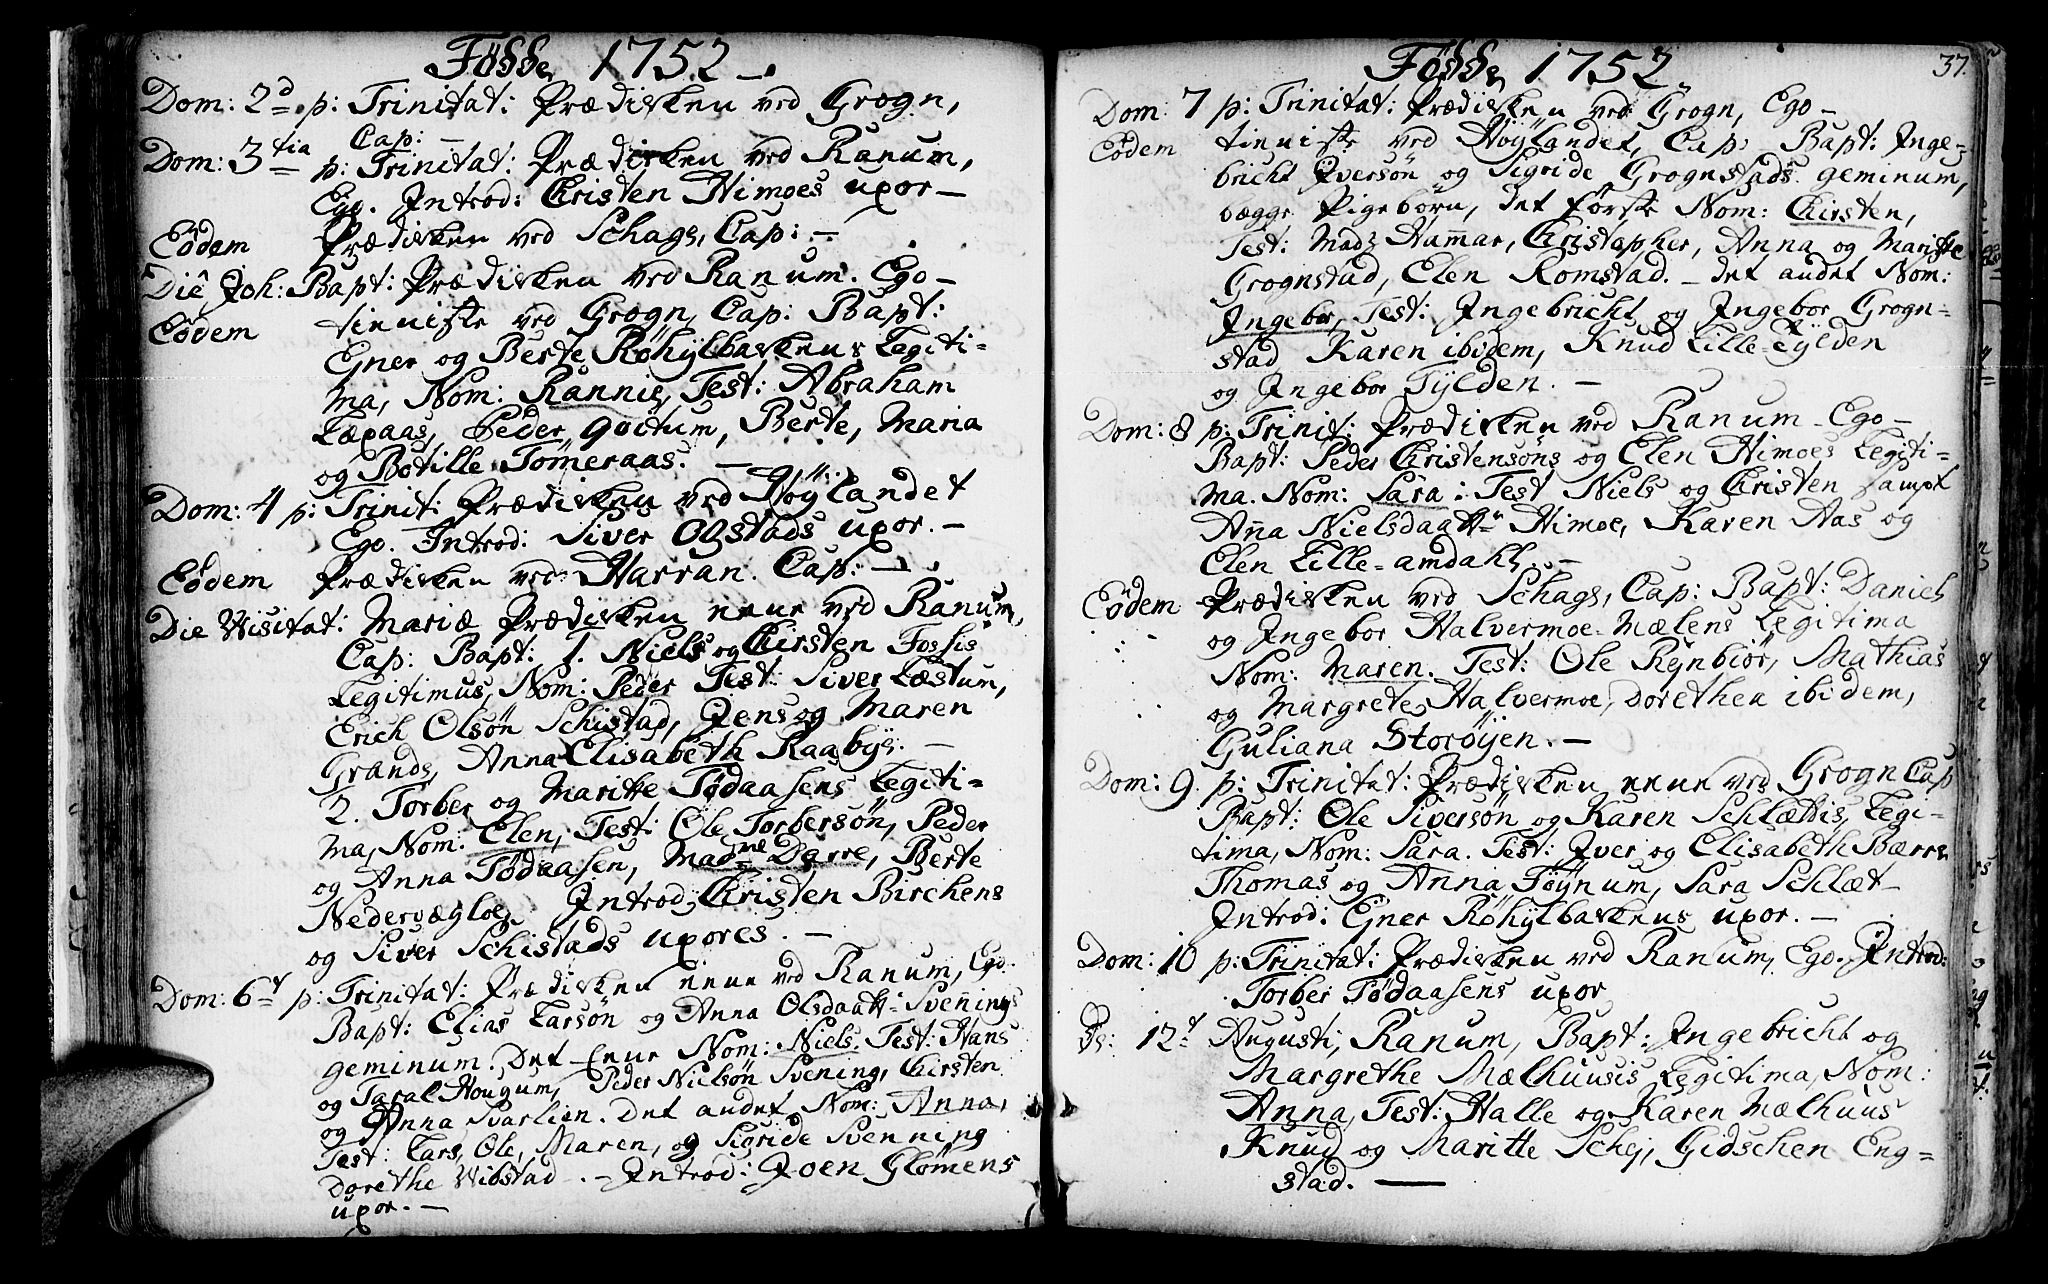 Födde 1752
Dom: 2d p: Trinitat: Prædiken ved Grogn,
Cap: –
Dom: 3tia p: Trinitat: Prædiken ved Ranum,
Ego. Introd: Christen Himoes uxor –
Eôdem Prædiken ved Schage, Cap: –
Diê Joh: Bapt: Prædiken ved Ranum. Ego –
Eôdem tieniste ved Grogn, Cap: Bapt:
Egner og Berte Röhylbakkens Legiti-
ma, Nom: Rannie, Test: Abraham
Læxaas, Peder Gortum, Berte, Maria
og Botille Tömeraas. –
Dom: 4 p: Trinit: Prædiken ved Höylandet
Ego. Introd: Siver Ogstads uxor. –
Eôdem Prædiken ved Harran. Cap: –
Die Visitat: Mariæ Prædiken ved Ranum,
Cap: Bapt: 1. Niels og Chirsten Fossis
Legitimus, Nom: Peder Test: Siver Læstum,
Erich Olsön Schistad, Jens og Maren
Grande, Anna Elisabeth Raabye. –
2. Torber og Maritte Tödaasens Legiti-
ma, Nom: Elen, Test: Ole Torbersön, Peder
og Anna Tödaasen, Madme Darre, Berte
Nedervægloe, Introd: Christen Birchens
og Siver Schistads uxores. –
Dom: 6t p: Trinitat: Prædiken ved Ranum, Ego.
Bapt: Elias Larsön og Anna Olsdaatt: Svenings
geminum. Det eene Nom: Niels. Test: Hans
og Taral Hougum, Peder Nielsön Svening, Chirsten
og Anna Svarlien. Det andet Nom: Anna,
Test: Lars, Ole, Maren, og Sigride Svenning
Dorethe Vibstad. – Introd: Joen Glömens
uxor. –
Födde 1752
37.
Dom: 7 p: Trinitat: Prædiken ved Grogn, Ego –
Eôdem tieniste ved Höylandet, Cap: Bapt: Inge-
bricht Iversön og Sigride Grognstads geminum,
begge Pigebörn, det förste Nom: Chirsten,
Test: Mads Hammar, Christopher, Anna og Maritte
Grognstad, Elen Romstad. – det andet Nom:
Ingebor, Test: Ingebricht og Ingebor Grogn-
stad Karen ibidem, Knud Lille-Tylden
og Ingebor Tylden. –
Dom: 8 p: Trinit: Prædiken ved Ranum – Ego –
Bapt: Peder Christensöns og Elen Himoes Legiti-
ma. Nom: Sara: Test Niels og Christen sampt
Anna Nielsdaatt: Himoe, Karen Aas og
Elen Lille-amdahl. –
Eôdem Prædiken ved Schage, Cap: Bapt: Daniel
og Ingebor Halvermoe-Mælens Legitima
Nom: Maren. Test: Ole Rynbiör, Mathias
og Margrete Halvermoe, Dorethea ibidem,
Guliana Storöyen. –
Dom: 9. p: Trinitat: Prædiken ved Grogn Cap
Bapt: Ole Siversön og Karen Schlættis, Legi-
tima, Nom: Sara. Test: Iver og Elisabeth Bærre
Thomas og Anna Töynum, Sara Schlæt –
Introd: Egner Röhylbakkens uxor. –
Dom: 10 p: Trinitat: Prædiken ved Ranum, Ego. Introd:
Torber Tödaasens uxor
12t Augusti, Ranum, Bapt: Ingebricht og
Margrethe Mælhuusis Legitima, Nom:
Anna, Test: Halle og Karen Mælhuus
Knud og Maritte Schej, Gidschen Eng-
stad. –